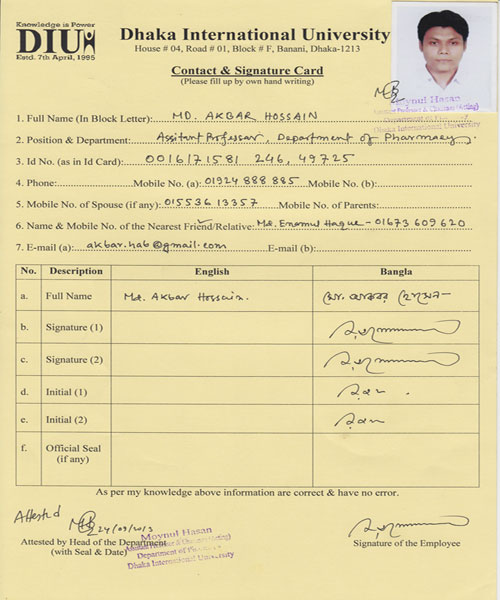 Knowledge is Power
DIU
Estd. 7th April, 1995
Dhaka International University
House # 04, Road # 01, Block # F, Banani, Dhaka-1213
Contact & Signature Card
(Please fill up by own hand writing)
Moynul Hasan
Dhaka International University
1. Full Name (In Block Letter): MD. AKBAR HOSSAIN
2. Position & Department: Assitant Professor, Department of Pharmacy
3. Id No. (as in Id Card): 0016171581 246, 49725
4. Phone: Mobile No. (a): 01924 888 885 Mobile No. (b):
5. Mobile No. of Spouse (if any): 015536 13357 Mobile No. of Parents:
6. Name & Mobile No. of the Nearest Friend/Relative: Md. Enamul Haque - 01673 609620
7. E-mail (a): akbar.hab@gmail.com E-mail (b):
No. Description English Bangla
a. Full Name Md. Akbar Hossain. মোঃ আকবর হোসেন
b. Signature (1)
c. Signature (2)
d. Initial (1)
e. Initial (2)
f. Official Seal
(if any)
As per my knowledge above information are correct & have no error.
Attested
24/09/2013
Moynul Hasan
Department of
Dhaka International University
Attested by Head of the Department
(with Seal & Date)
Signature of the Employee